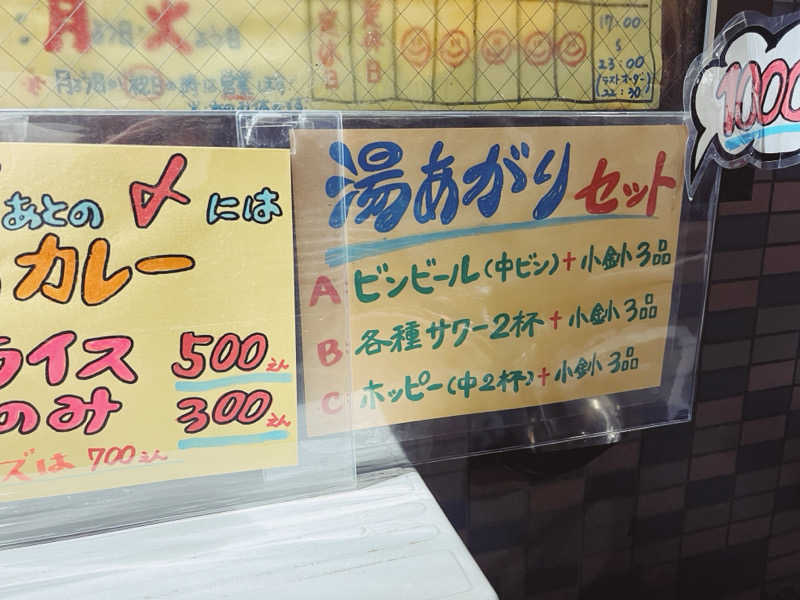 月よう日・火よう日
定休日
定休日
17:00
〜
23:00
(ラストオーダー)
22:30
1000
あとの〆には
カレー
ライス 500えん
のみ 300えん
ズは 700えん
湯あがりセット
A:ビンビール(中ビン)+小鉢3品
B:各種サワー2杯+小鉢3品
C:ホッピー(中2杯)+小鉢3品